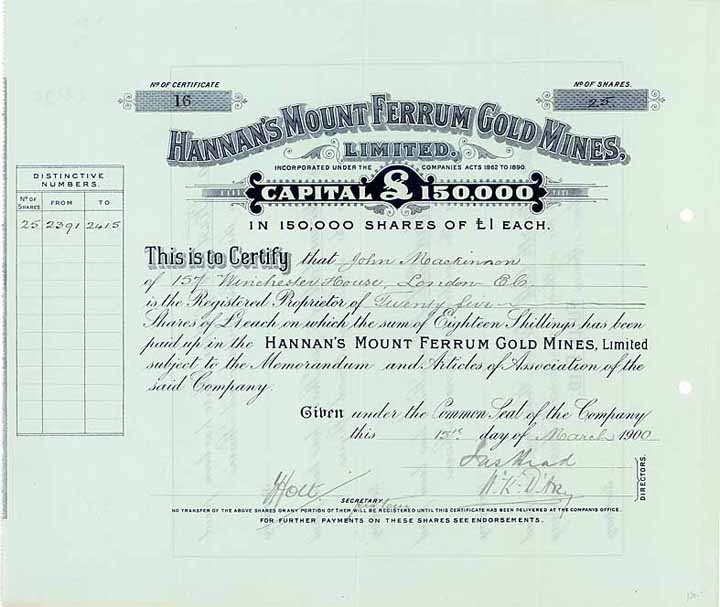 Nº OF CERTIFICATE
16
Nº OF SHARES.
25
HANNAN'S MOUNT FERRUM GOLD MINES,
LIMITED.
INCORPORATED UNDER THE COMPANIES ACTS 1862 TO 1890.
CAPITAL £150,000
IN 150,000 SHARES OF £1 EACH.
DISTINCTIVE
NUMBERS.
Nº OF SHARES FROM TO
25 2391 2415
This is to Certify that John Mackinnon
of 157 Winchester House, London E.C.
is the Registered Proprietor of Twenty five
Shares of £1 each on which the sum of Eighteen Shillings has been
paid up in the HANNAN'S MOUNT FERRUM GOLD MINES, Limited
subject to the Memorandum and Articles of Association of the
said Company.
Given under the Common Seal of the Company
this 15th day of March 1900
DIRECTORS.
SECRETARY
NO TRANSFER OF THE ABOVE SHARES OR ANY PORTION OF THEM WILL BE REGISTERED UNTIL THIS CERTIFICATE HAS BEEN DELIVERED AT THE COMPANIS OFFICE.
FOR FURTHER PAYMENTS ON THESE SHARES SEE ENDORSEMENTS.